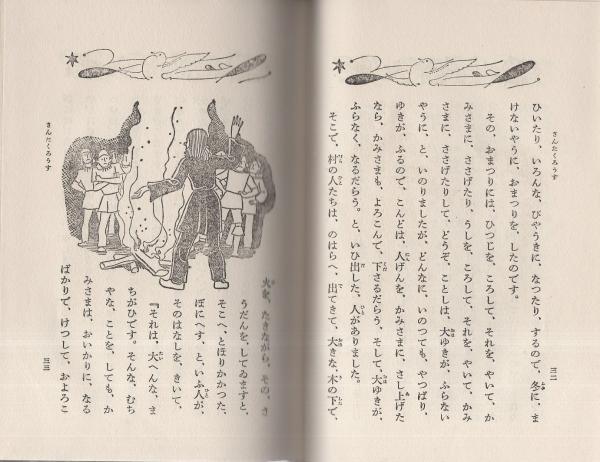 さんたくろうす
三二
ひいたり、いろんな、びやうきに、なつたり、するので、冬に、ま
けないやうに、おまつりを、したのです。
その、おまつりには、ひつじを、ころして、それを、やいて、か
みさまに、ささげたり、うしを、ころして、それを、やいて、かみ
さまに、ささげたりして、どうぞ、ことしは、大ゆきが、ふらない
やうに、と、いのりましたが、どんなに、いのつても、やつぱり、
ゆきが、ふるので、こんどは、人げんを、かみさまに、さし上げた
なら、かみさまも、よろこんで、下さるだらう、そして、大ゆきが、
ふらなく、なるだらう。と、いひ出した、人がありました。
そこで、村の人たちは、のはらへ、出てきて、大きな、木の下で、
火を、たきながら、その、さ
うだんを、してゐますと、
そこへ、とほりかかつた、
ぼにへす、と、いふ人が、
そのはなしを、きいて、
『それは、大へんな、ま
ちがひです。そんな、むち
やな、ことを、しても、か
みさまは、おいかりに、なる
ばかりで、けつして、およろこ
さんたくろうす
三三